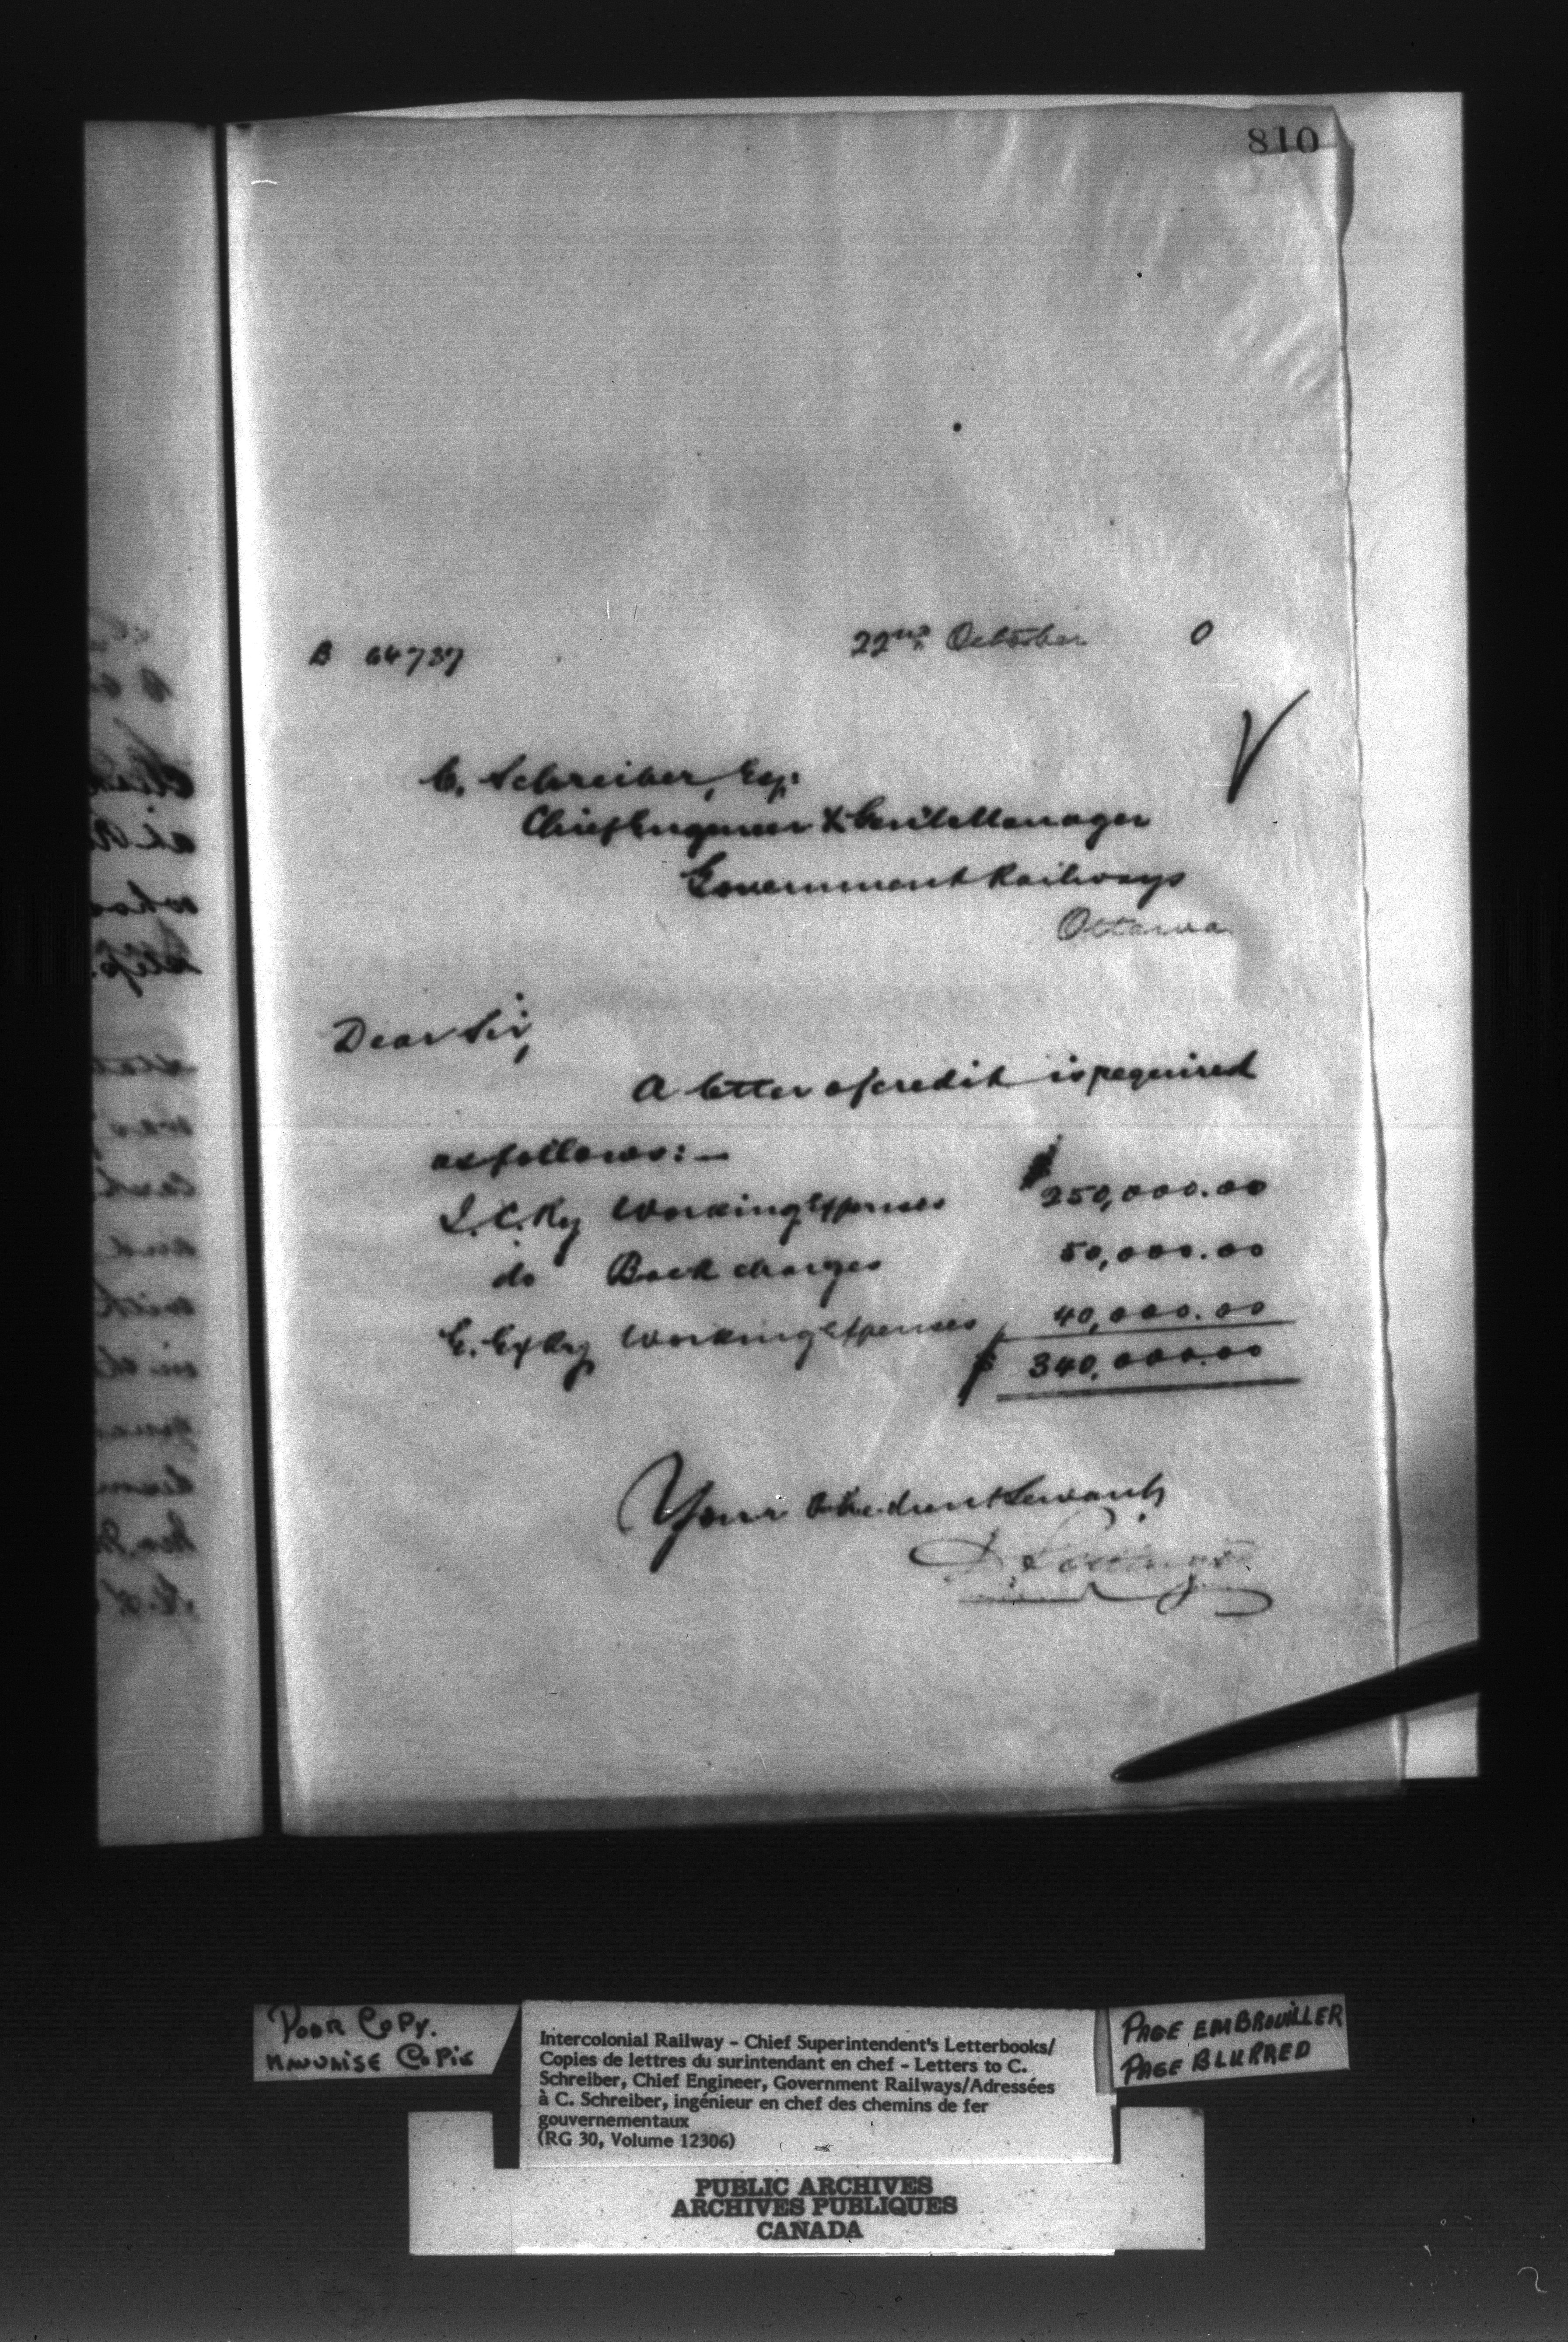 810
B 64737 22nd October 0
C. Schreiber, Esq.
Chief Engineer & Genl. Manager
Government Railways
Ottawa
Dear Sir,
A letter of credit is required
as follows:—
I.C.Ry Working Expenses $250,000.00
do Back charges 50,000.00
E. Ex Ry Working Expenses 40,000.00
$ 340,000.00
Your Obedient Servant
D. Pottinger
POOR COPY.
MAUVAISE COPIE
Intercolonial Railway - Chief Superintendent's Letterbooks/
Copies de lettres du surintendant en chef - Letters to C.
Schreiber, Chief Engineer, Government Railways/Adressées
à C. Schreiber, ingénieur en chef des chemins de fer
gouvernementaux
(RG 30, Volume 12306)
PAGE EMBROUILLER
PAGE BLURRED
PUBLIC ARCHIVES
ARCHIVES PUBLIQUES
CANADA